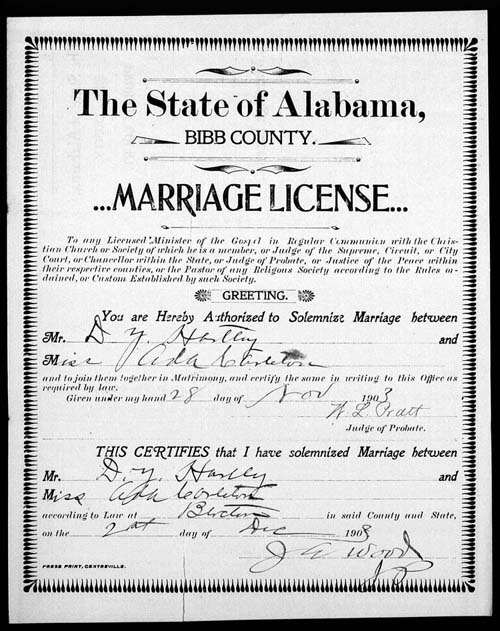 The State of Alabama,
BIBB COUNTY.
...MARRIAGE LICENSE...
To any Licensed Minister of the Gospel in Regular Communion with the Chris-
tian Church or Society of which he is a member, or Judge of the Supreme, Circuit, or City
Court, or Chancellor within the State, or Judge of Probate, or Justice of the Peace within
their respective counties, or the Pastor of any Religious Society according to the Rules or-
dained, or Custom Established by such Society.
GREETING.
You are Hereby Authorized to Solemnize Marriage between
Mr. D. Y. Hartley and
Miss Ada
and to join them together in Matrimony, and certify the same in writing to this Office as
required by law.
Given under my hand 28 day of Nov 1903
W L Pratt
Judge of Probate.
THIS CERTIFIES that I have solemnized Marriage between
Mr. D. Y. Hartley and
Miss Ada
according to Law at Blocton in said County and State,
on the day of Dec 1903
J W Wood
J P
PRESS PRINT, CENTREVILLE.